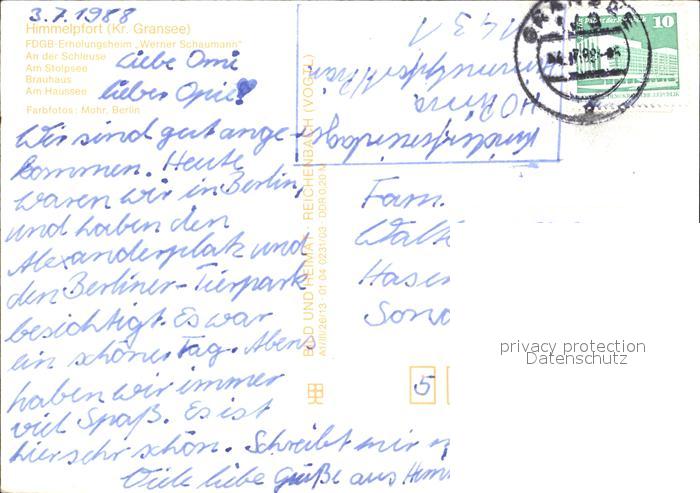 3.7.1988
Himmelpfort (Kr. Gransee)
FDGB-Erholungsheim „Werner Schaumann"
An der Schleuse
Am Stolpsee
Brauhaus
Am Haussee
Farbfotos: Mohr, Berlin
Liebe Omi
lieber Opi!
Wir sind gut ange-
kommen. Heute
waren wir in Berlin,
und haben den
Alexanderplatz und
den Berliner-Tierpark
besichtigt. Es war
ein schöner Tag. Abens
haben wir immer
viel Spaß. Es ist
hier sehr schön. Schreibt mir
Viele liebe Grüße aus Him
BILD UND HEIMAT REICHENBACH (VOGTL)
A1/III/26/13 01 04 0231/03 DDR 0,20 M
1431
Himmelpfort
10
Fam.
Walt
Hasen
Sono
5
privacy protection
Datenschutz